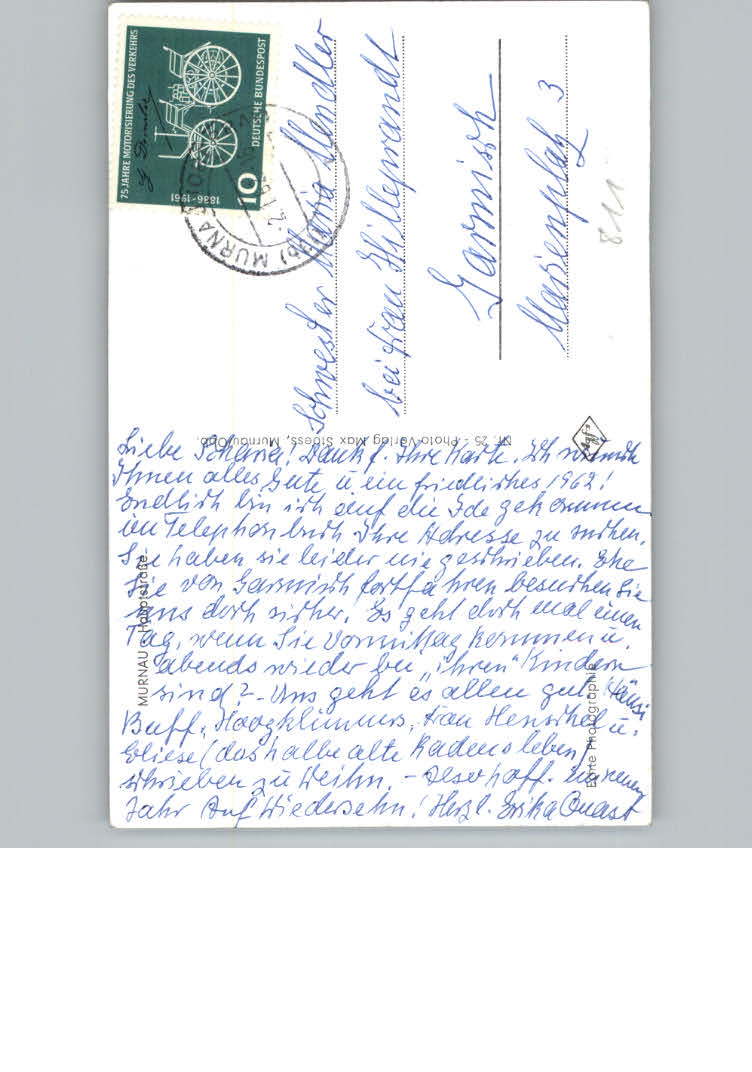 75 JAHRE MOTORISIERUNG DES VERKEHRS
G Daimler
1886-1961
10
DEUTSCHE BUNDESPOST
MURNAU
Schwester Maria Mendler
bei Frau Hilleprandt
Garmisch
Marienplatz 3
811
Nr. 25 - Photo-Verlag Max Stoess, Murnau/Obb.
Agfa
MURNAU - Hauptstraße
Echte Photographie
Liebe Dank f. Ihre Karte. Ich wünsch
Ihnen alles Gute u ein friedliches 1962!
Endlich bin ich auf die Ide gekommen
im Telephonbuch Ihre Adresse zu suchen.
Sie haben sie leider nie geschrieben. Ehe
Sie von Garmisch fortfahren besuchen Sie
uns doch sicher. Es geht doch mal einen
Tag, wenn Sie Vormittag kommen u.
abends wieder bei „ihren“ Kindern
sind? - Uns geht es allen gut. Hänsi
Buff, Frau Henschel u.
(das halbe alte leben)
schrieben zu Weihn. - hoff. im neuen
Jahr Auf Wiedersehn! Herzl. Erika Quast